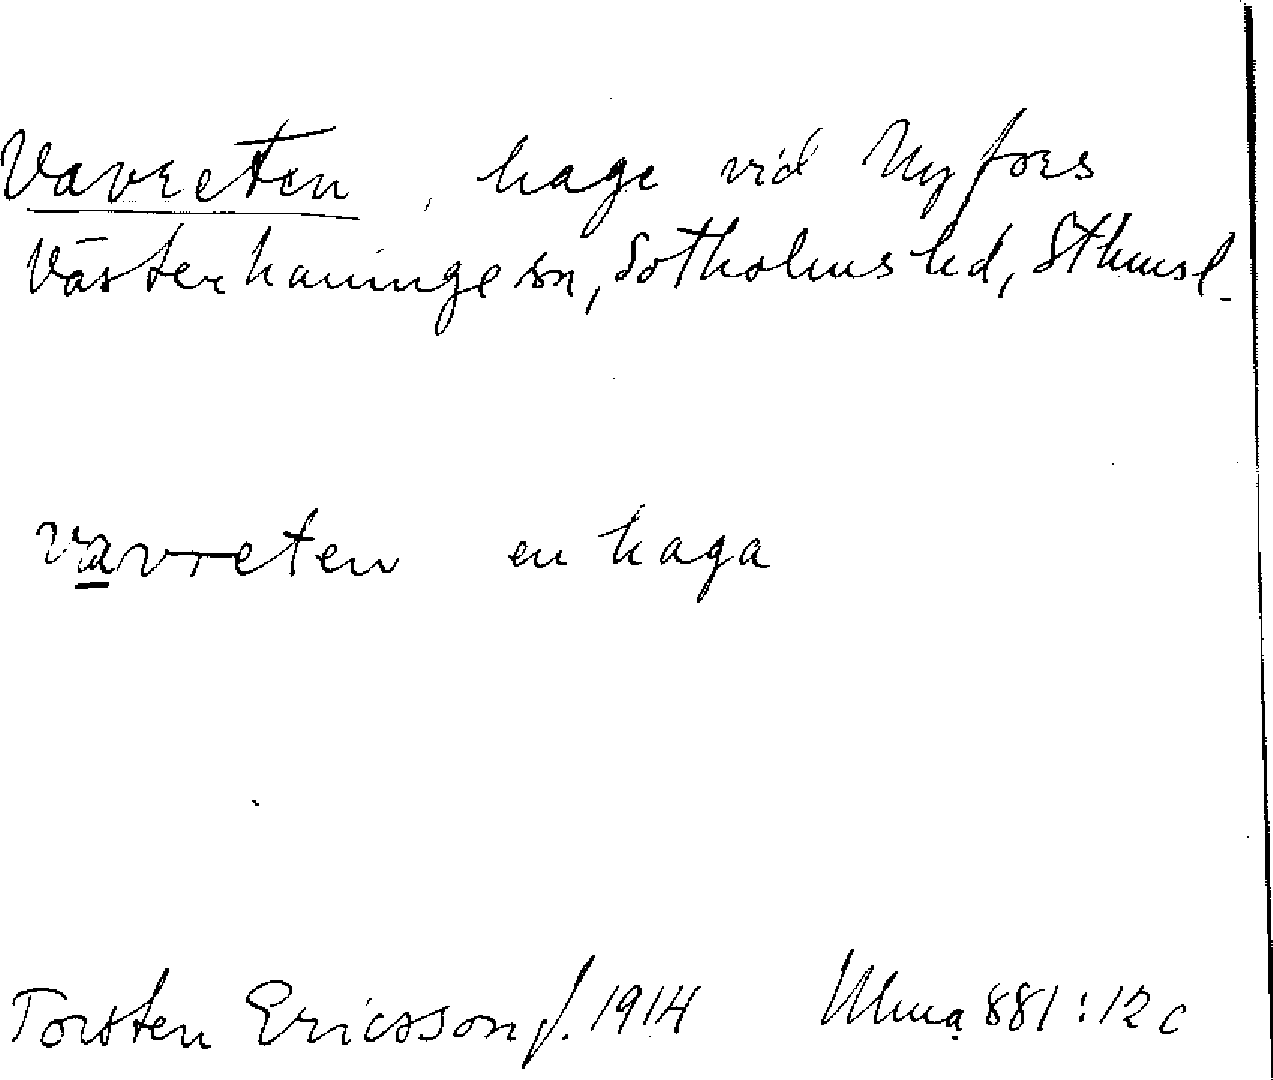 Vavreten, hage vid Nyfors
Västerhaninge sn, Sotholms hd, Sthmsl.
vavreten en haga
Torsten Ericsson f. 1914 Ulma 881:12c